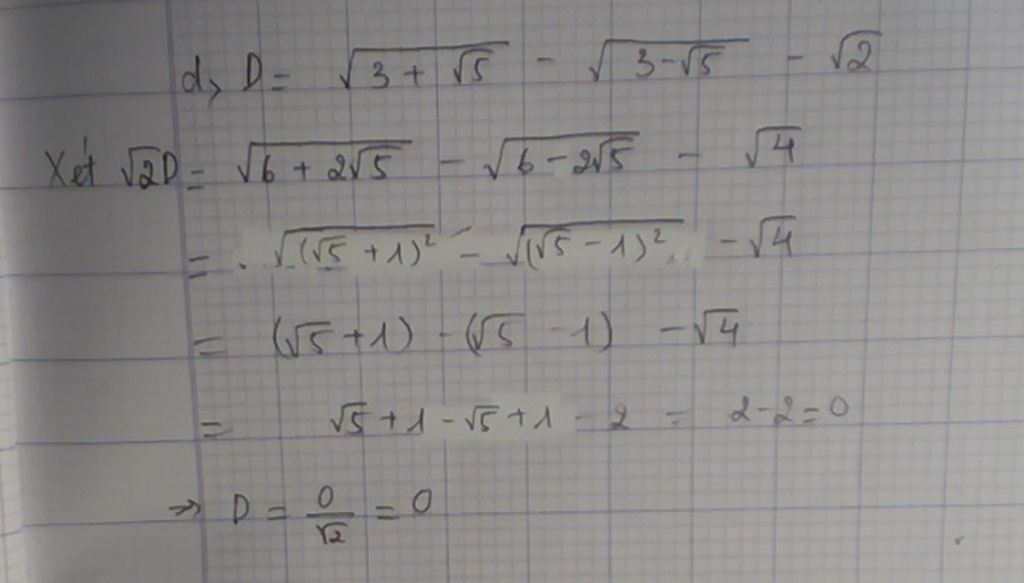 d, D = √(3 + √5) - √(3-√5) - √2
Xét √2D = √(6 + 2√5) - √(6 - 2√5) - √4
= √((√5 + 1)²) - √((√5 - 1)²) - √4
= (√5 + 1) - (√5 - 1) - √4
= √5 + 1 - √5 + 1 - 2 = 2 - 2 = 0
=> D = 0/√2 = 0